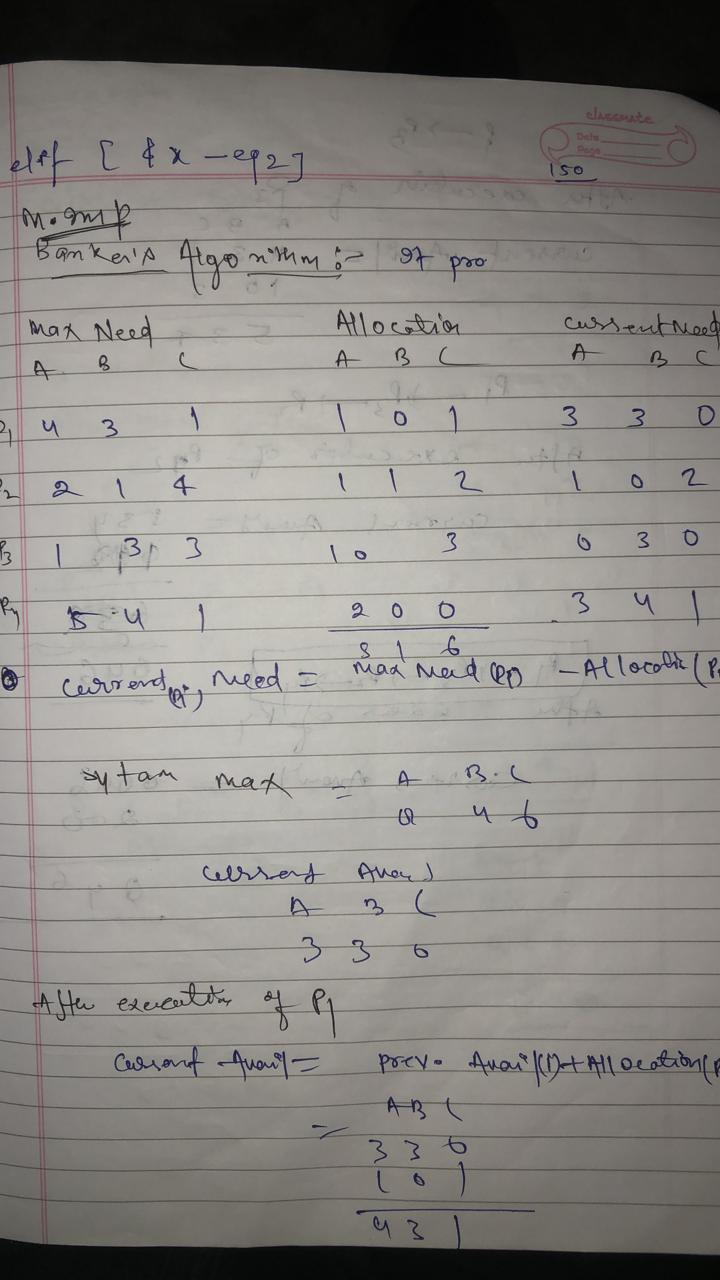 classmate
Date
Page
150
elif [ $x -eq 2 ]
M. Imp
Banker's Algorithm :- It pro
Max Need Allocation Current Need
A B C A B C A B C
P1 4 3 1 1 0 1 3 3 0
P2 2 1 4 1 1 2 1 0 2
P3 1 3 3 1 0 3 0 3 0
P4 5 4 1 2 0 0 3 4 1
5 1 6
Current Need = Max Need (Pi) - Allocatic (P
System max = A B C
4 6
Current Avail
A B C
3 3 0
After execution of P1
Current Avail = prev. Avail(1) + Allocation (P
A B C
= 3 3 0
1 0 1
4 3 1